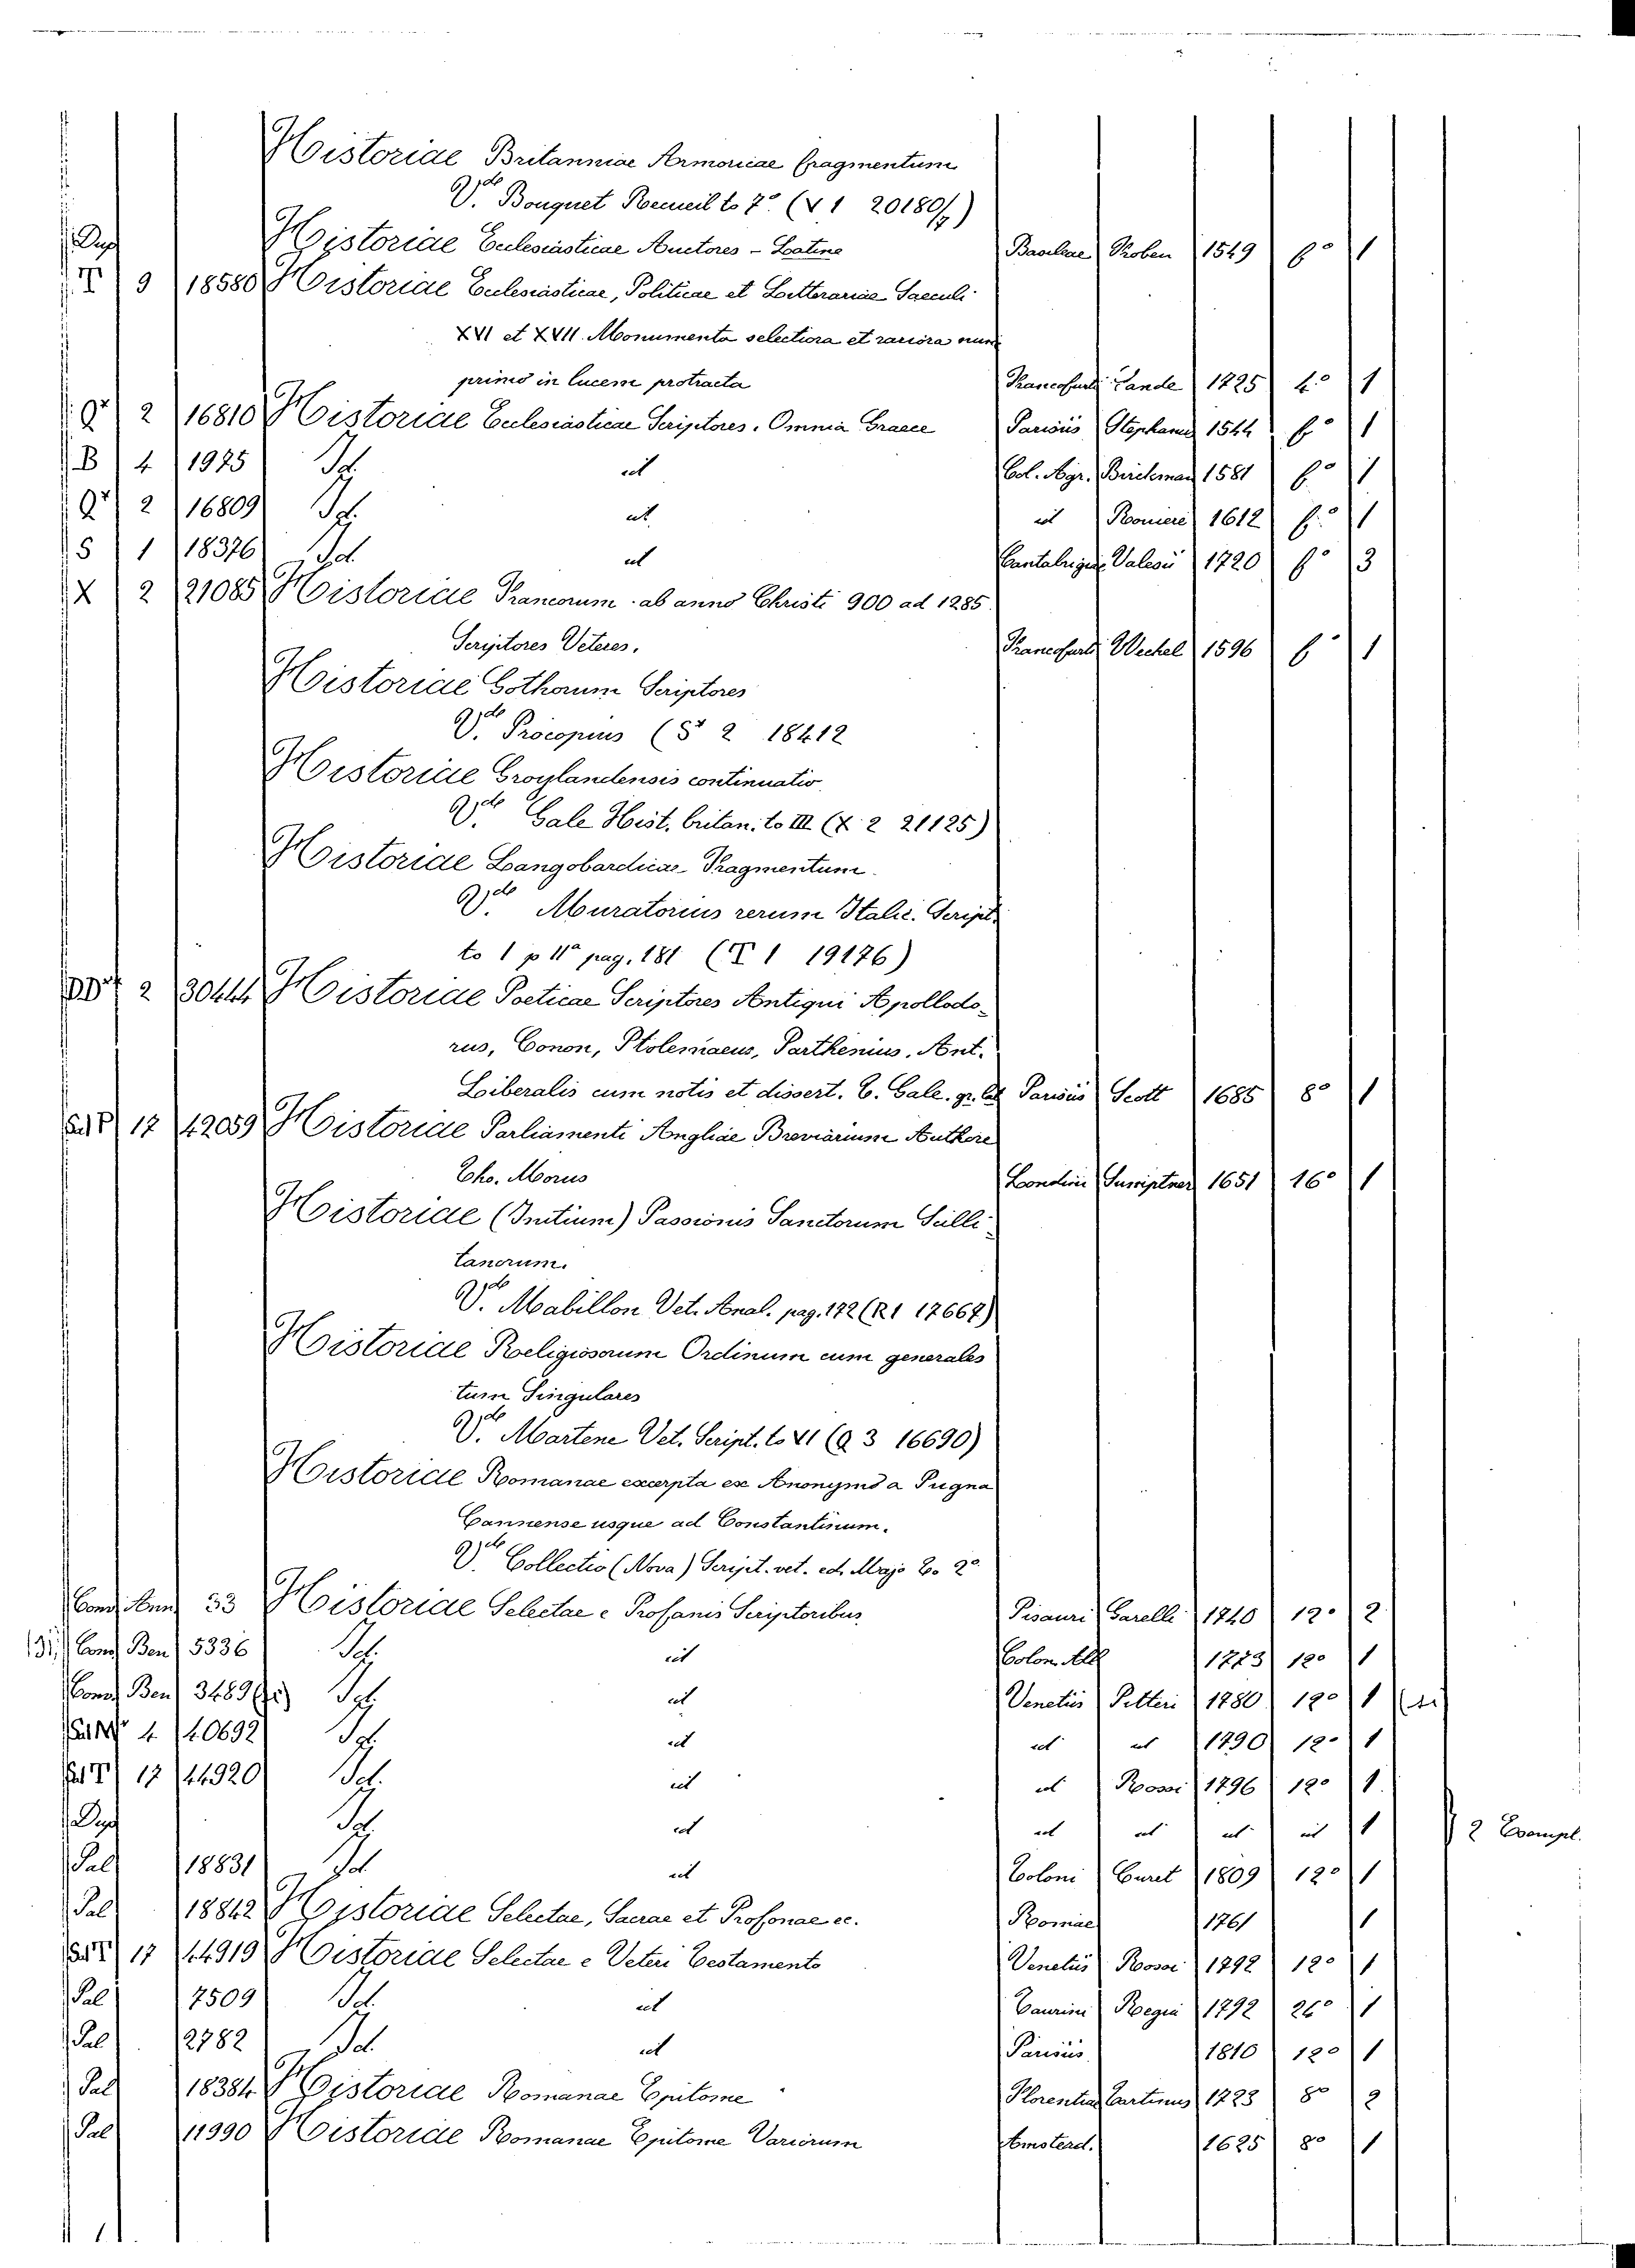 Historiae Britanniae Armoricae fragmentum
V.de Bouquet Recueil to 7° (V 1 20180/7)
Dup Historiae Ecclesiasticae Auctores - Latine Basileae Froben 1549 f° 1
T 9 18580 Historiae Ecclesiasticae, Politicae et Litterariae Saeculi
XVI et XVII. Monumenta selectiora et rariora nunc
primo in lucem protracta Francofurti Lande 1725 4° 1
Q* 2 16810 Historiae Ecclesiasticae Scriptores. Omnia Graece Parisiis Stephanus 1544 f° 1
B 4 1975 Id. ut Col. Agr. Birckman 1581 f° 1
Q* 2 16809 Id. ut ut Roviere 1612 f° 1
S 1 18376 Id. ut Cantabrigiae 1720 f° 3
X 2 21085 Historiae Francorum ab anno Christi 900 ad 1285
Scriptores Veteres. Francofurti Wechel 1596 f° 1
Historiae Gothorum Scriptores
V.de Procopius (S* 2 18412
Historiae Croylandensis continuatio
V.de Gale Hist. britan. to III (X 2 21125)
Historiae Langobardicae Fragmentum
V.de Muratorius rerum Italic. Script.
to 1 p IIa pag. 181 (T 1 19176)
2 30444 Historiae Poeticae Scriptores Antiqui Apollodo-
rus, Conon, Ptolemaeus, Parthenius, Ant.
Liberalis cum notis et dissert. C. Gale. gr. lat Parisiis Scott 1685 8° 1
17 42059 Historiae Parliamenti Angliae Breviarium Authore
Tho. Morus Londini 1651 16° 1
Historiae (Initium) Passionis Sanctorum Scilli-
tanorum.
V.de Mabillon Vet. Anal. pag. 172 (R1 17667)
Historiae Religiosorum Ordinum cum generales
tum Singulares
V.de Martene Vet. Script. to VI (Q 3 16690)
Historiae Romanae excerpta ex Anonymo a Pugna
Cannense usque ad Constantinum.
V.de Collectio (Nova) Script. vet. ed. Majo to 2°
33 Historiae Selectae e Profanis Scriptoribus Pisauri Gavelli 1740 12° 2
Cons Ben 5336 Id. ut Colon. All 1773 12° 1
Cons Ben 3489 Id. ut Venetiis Pitteri 1780 12° 1
4 40692 Id. ut ut ut 1790 12° 1
17 44920 Id. ut ut Rossi 1796 12° 1
Dup Id. ut ut ut ut ut 1 2 Exempl.
Pal 18831 Id. ut Coloni Curet 1809 12° 1
Pal 18842 Historiae Selectae, Sacrae et Profanae ec. Romae 1761 1
17 44919 Historiae Selectae e Veteri Testamento Venetiis Rossi 1792 12° 1
Pal 7509 Id. ut Taurini Regia 1792 1
Pal 2782 Id. ut Parisiis 1810 12° 1
Pal 18384 Historiae Romanae Epitome Florentiae Tartinus 1723 8° 2
Pal 11990 Historiae Romanae Epitome Variorum Amsterd. 1625 8° 1